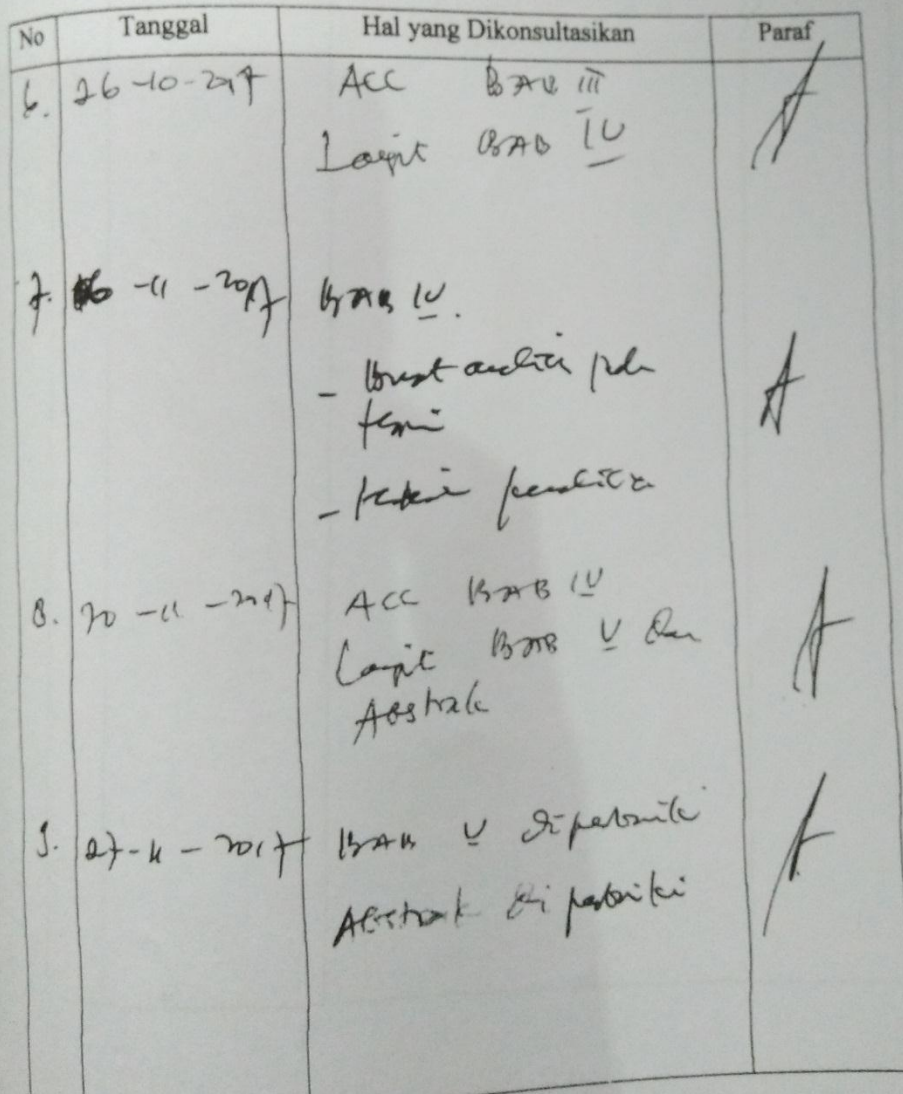 No Tanggal Hal yang Dikonsultasikan Paraf
6. 26-10-2017 ACC BAB III
Lanjut BAB IV
7. -11-2017 BAB IV.
-
teori
-
8. 20-11-2017 ACC BAB IV
Lanjut BAB V dan
Abstrak
9. 27-11-2017 BAB V diperbaiki
Abstrak diperbaiki